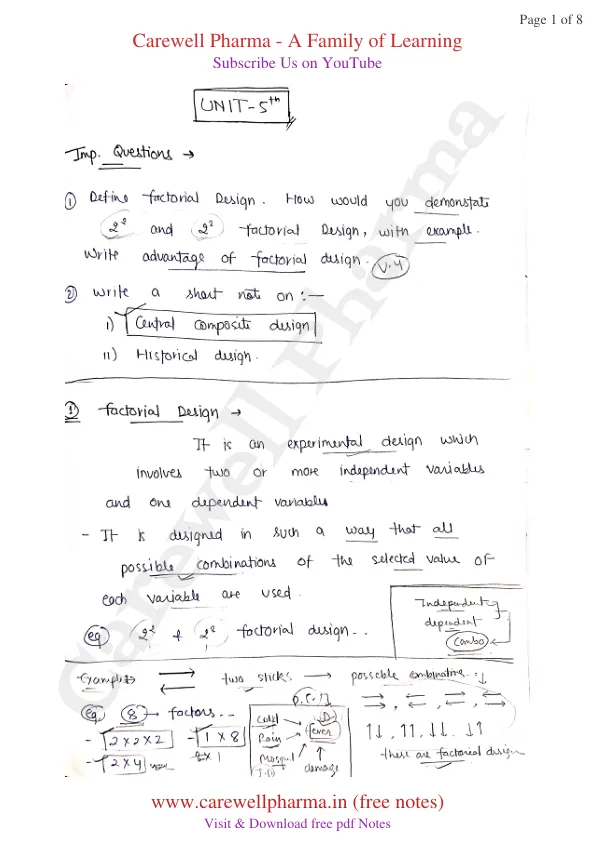 Page 1 of 8
Carewell Pharma - A Family of Learning
Subscribe Us on YouTube
UNIT-5th
Imp. Questions →
① Define factorial Design. How would you demonstate
2² and 2² factorial Design, with example.
Write advantage of factorial design. V.Y
② Write a short not on :—
i) Central composite design
ii) Historical design.
① factorial Design →
It is an experimental design which
involves two or more independent variables
and one dependent variables
- It is designed in such a way that all
possible combinations of the selected value of
each variable are used.
eg 2² & 2² factorial design..
Independent
dependent
Combo
Examples ⇄ two sticks → possible combinations :↓
eg. 8 → factors...
- 2x2x2 - 1 x 8
- 2x4
8x1
Cold
Rain
fever
damage
→→, ←←, →←, ⇄
↑↓, ↑↑, ↓↓, ↓↑
these are factorial design
Carewell Pharma
www.carewellpharma.in (free notes)
Visit & Download free pdf Notes